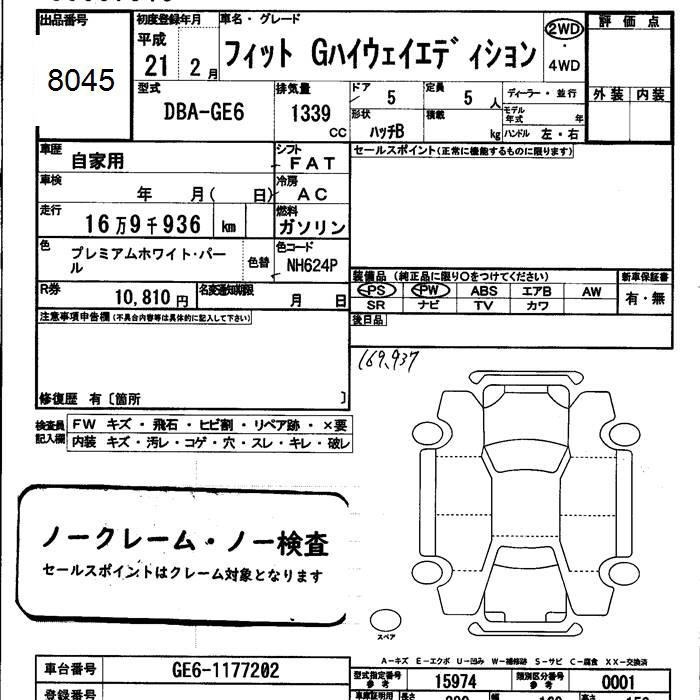 出品番号
8045
初度登録年月
平成
21 2月
車名・グレード
フィット Gハイウェイエディション
2WD
・
4WD
評価点
外装 内装
型式
DBA-GE6
排気量
1339
cc
ドア
5
定員
5 人
形状
ハッチB
積載
kg
ディーラー・並行
モデル年式 年
ハンドル 左・右
車歴
自家用
シフト
FAT
セールスポイント(正常に機能するものに限ります)
車検
年 月( 日)
冷房
AC
走行
16万9千936 km
燃料
ガソリン
色
プレミアムホワイト・パール
色替
色コード
NH624P
装備品 (純正品に限り○をつけてください)
PS PW ABS エアB AW
SR ナビ TV カワ
新車保証書
有・無
R券
10,810円
名変通知期限
月 日
後日品
注意事項申告欄(不具合内容等は具体的に記入して下さい)
169,937
修復歴 有〔箇所 〕
検査員記入欄
FW キズ・飛石・ヒビ割・リペア跡・×要
内装 キズ・汚レ・コゲ・穴・スレ・キレ・破レ
ノークレーム・ノー検査
セールスポイントはクレーム対象となります
スペア
A-キズ E-エクボ U-凹み W-補修跡 S-サビ C-腐食 XX-交換済
車台番号
GE6-1177202
型式指定番号
参考
15974
類別区分番号
参考
0001
登録番号
車庫証明用
長さ
幅
高さ